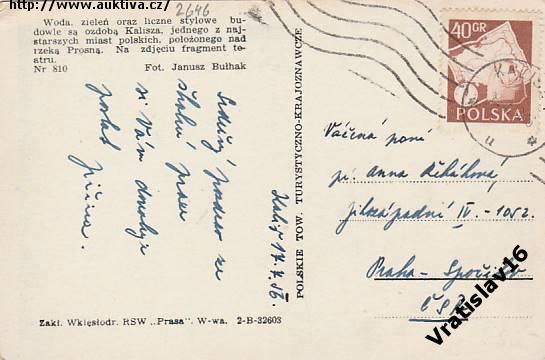 http://www.auktiva.cz/
2646
Woda, zieleń oraz liczne stylowe bu-
dowle są ozdobą Kalisza, jednego z naj-
starszych miast polskich, położonego nad
rzeką Prosną. Na zdjęciu fragment te-
atru.
Nr 810 Fot. Janusz Bułhak
Srdečný pozdrav ze
si Vám dovoluje
poslat
Kalisz 17.7.56.
POLSKIE TOW. TURYSTYCZNO-KRAJOZNAWCZE
40 GR
POLSKA
Vážená paní
pí. Anna
Jihozápadní IV. - 1052.
Praha - Spořilov
ČSR
Zakł. Wklęsłodr. RSW „Prasa". W-wa. 2-B-32603
Vratislav16